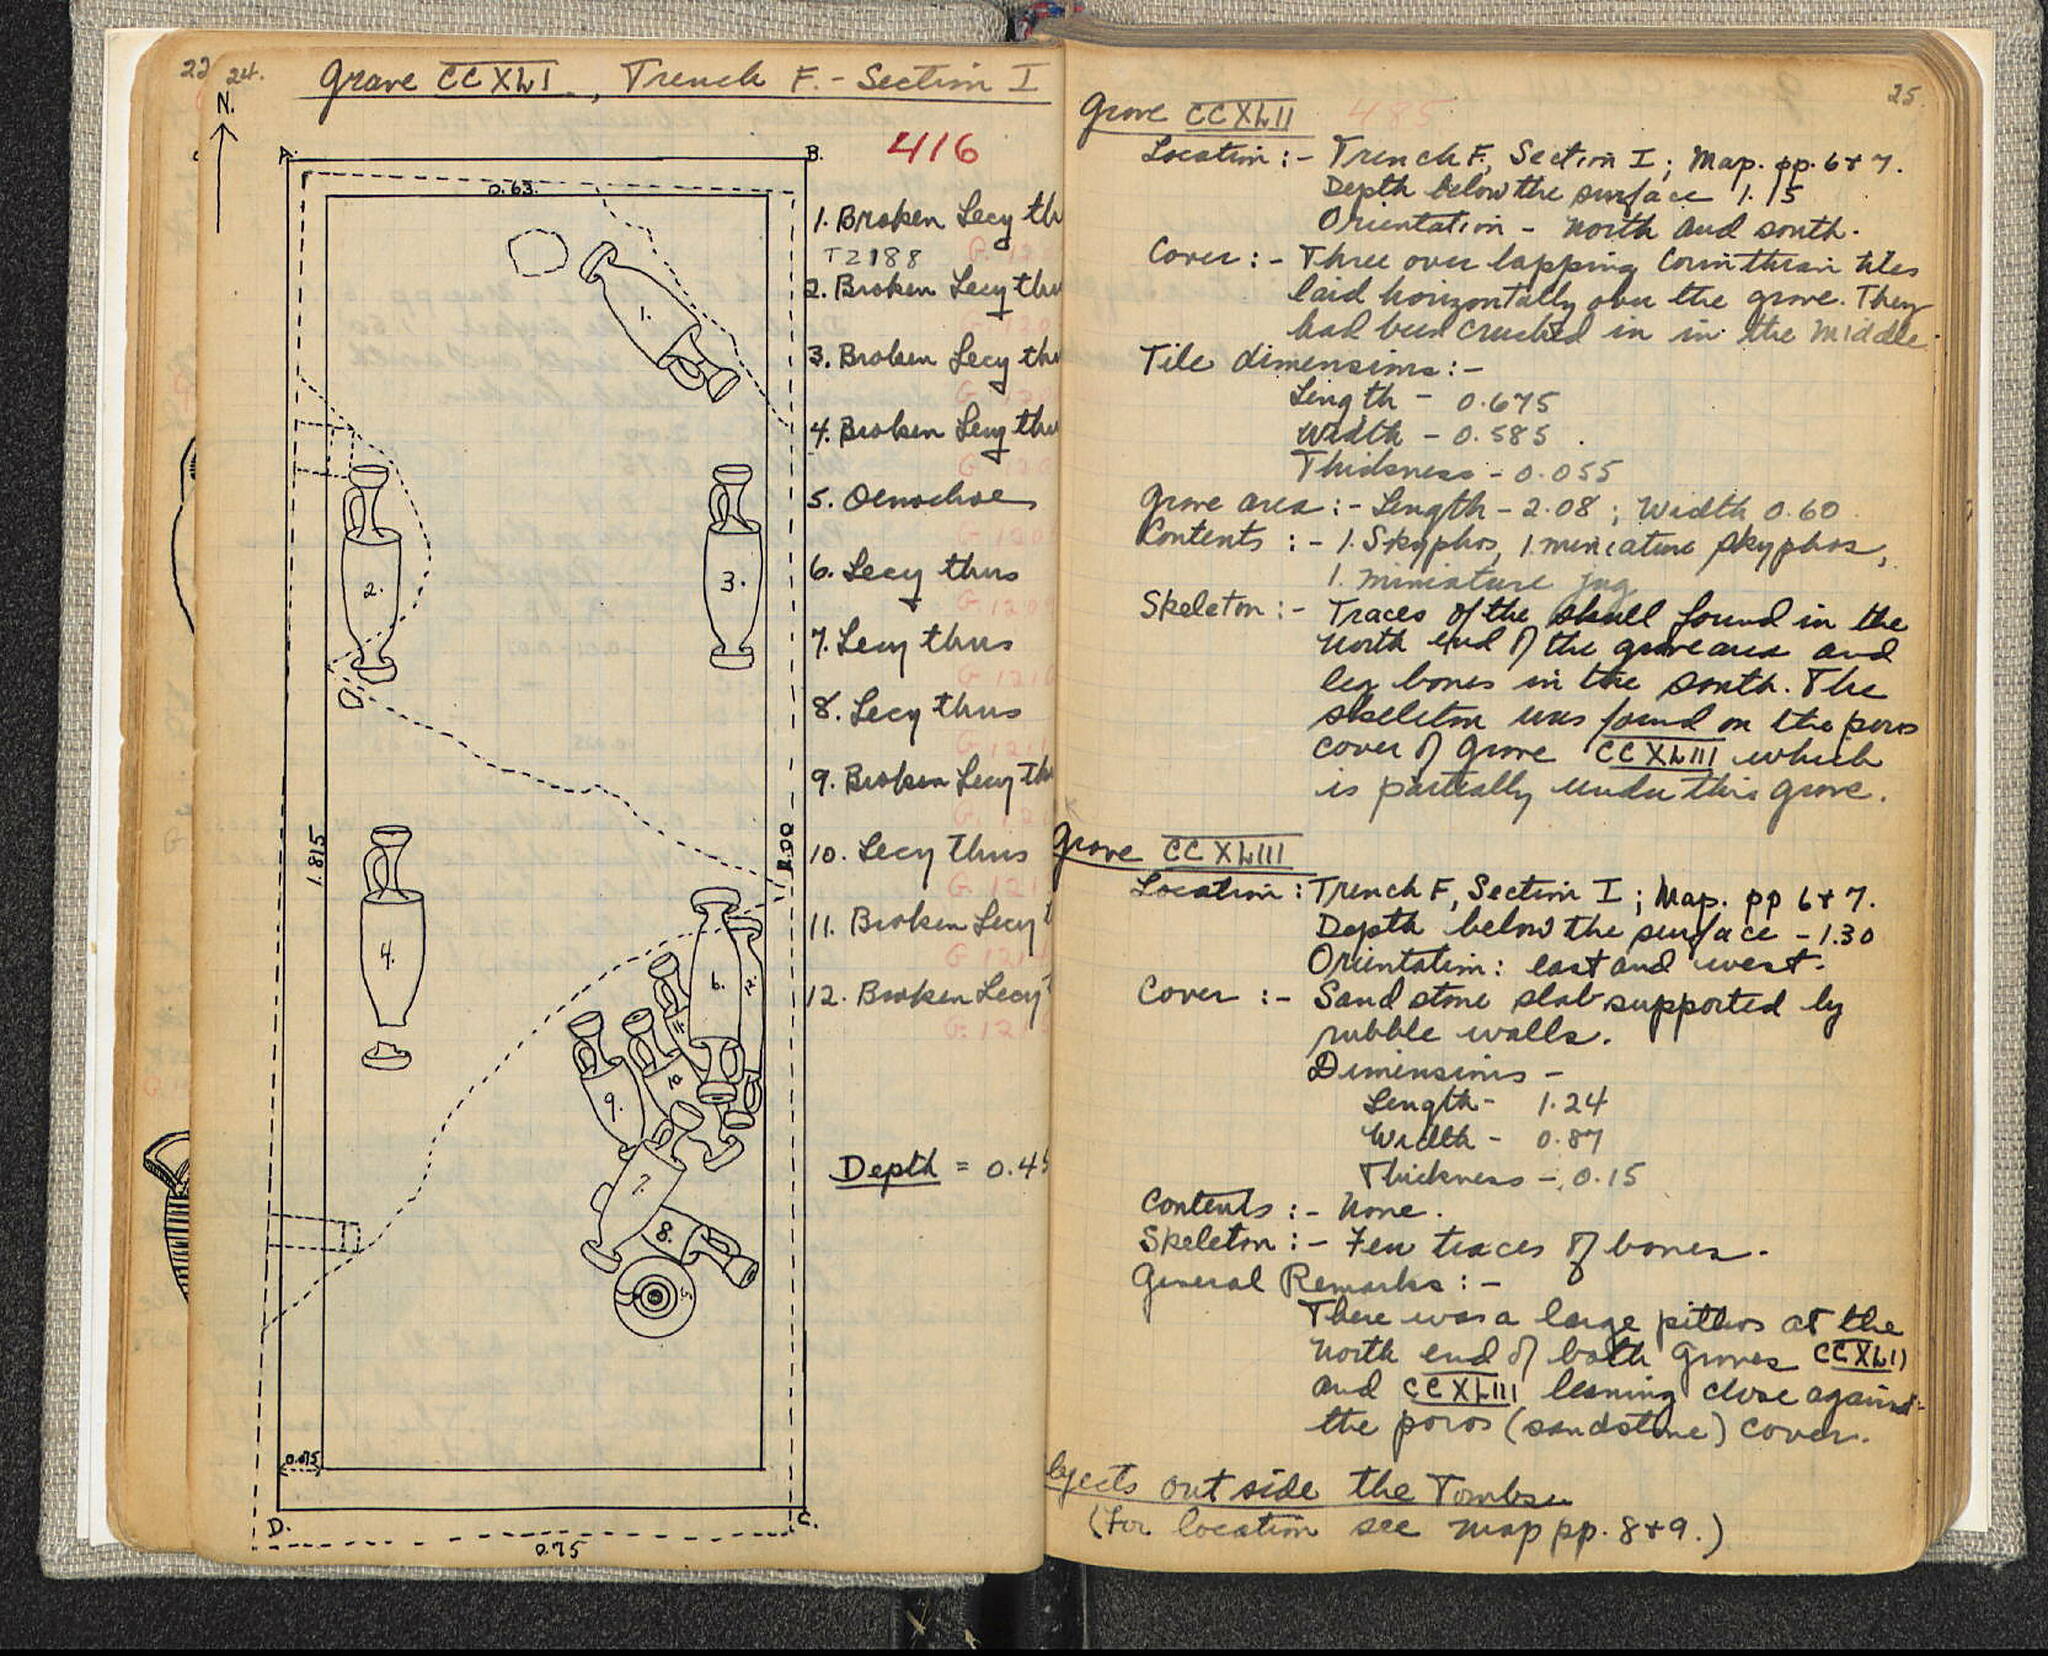 22
24.
Grave CCXLI., Trench F. - Section I
N.
A.
B.
0.63.
416
1. Broken Lecyth
T2188
2. Broken Lecythu
3. Broken Lecythu
4. Broken Lecythu
5. Oenochoe
6. Lecythus
7. Lecythus
8. Lecythus
9. Broken Lecyth
10. Lecythus
11. Broken Lecyt
12. Broken Lecyt
Depth = 0.45
1.
2.
3.
4.
6.
12
11
10
9.
7.
8.
5.
1.815
2.00
0.075
D.
C.
0.75
25.
Grave CCXLII 485
Location :- Trench F, Section I ; Map. pp. 6+7.
Depth below the surface 1.15
Orientation - North and south.
Cover :- Three over lapping Corinthian tiles
laid horizontally over the grave. They
had been crushed in in the middle.
Tile dimensions :-
Length - 0.675
Width - 0.585.
Thickness - 0.055
Grave area :- Length - 2.08 ; Width 0.60
Contents :- 1. Skyphos, 1. miniature skyphos,
1. miniature jug
Skeleton :- Traces of the skull found in the
North end of the grave area and
leg bones in the south. The
skeleton was found on the poros
cover of Grave CCXLIII which
is partially under this grave.
x
Grave CCXLIII
Location : Trench F, Section I ; Map. pp 6+7.
Depth below the surface - 1.30
Orientation: east and west.
Cover :- Sand stone slab supported by
rubble walls.
Dimensions -
Length - 1.24
Width - 0.87
Thickness - 0.15
Contents :- None.
Skeleton :- Few traces of bones.
General Remarks :-
There was a large pithos at the
North end of both Graves CCXLII
and CCXLIII leaning close against
the poros (sandstone) cover.
bjects outside the Tombs
(For location see map pp. 8+9.)